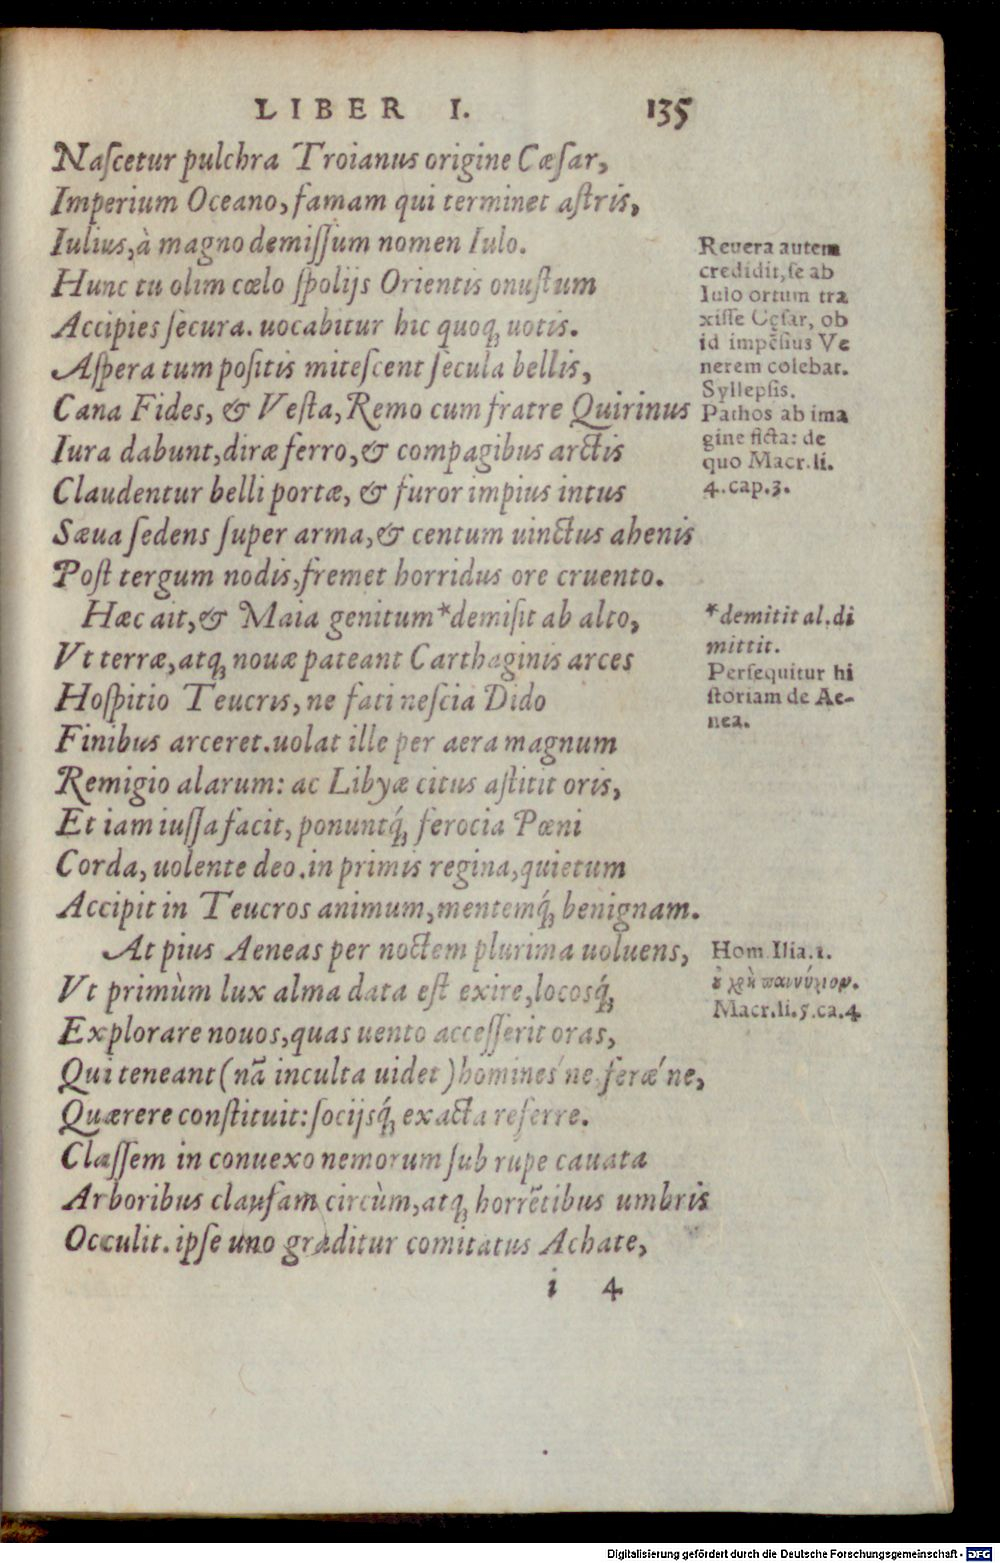 LIBER I. 135
Naſcetur pulchra Troianus origine Cæſar,
Imperium Oceano, famam qui terminet aſtris,
Iulius, à magno demiſſum nomen Iulo.
Hunc tu olim cœlo ſpolijs Orientis onuſtum
Accipies ſecura. uocabitur hic quoq; uotis.
Aſpera tum poſitis miteſcent ſecula bellis,
Cana Fides, & Veſta, Remo cum fratre Quirinus
Iura dabunt, diræ ferro, & compagibus arctis
Claudentur belli portæ, & furor impius intus
Sæua ſedens ſuper arma, & centum uinctus ahenis
Poſt tergum nodis, fremet horridus ore cruento.
Hæc ait, & Maia genitum *demiſit ab alto,
Vt terræ, atq; nouæ pateant Carthaginis arces
Hoſpitio Teucris, ne fati neſcia Dido
Finibus arceret. uolat ille per aera magnum
Remigio alarum: ac Libyæ citus aſtitit oris,
Et iam iuſſa facit, ponuntq́; ferocia Pœni
Corda, uolente deo. in primis regina, quietum
Accipit in Teucros animum, mentemq́; benignam.
At pius Aeneas per noctem plurima uoluens,
Vt primùm lux alma data eſt exire, locosq́;
Explorare nouos, quas uento acceſſerit oras,
Qui teneant (nā inculta uidet) homines´ne feræ´ne,
Quærere conſtituit: ſocijsq́; exacta referre.
Claſſem in conuexo nemorum ſub rupe cauata
Arboribus clauſam circùm, atq; horrētibus umbris
Occulit. ipſe uno graditur comitatus Achate,
i 4
Reuera autem
credidit, ſe ab
Iulo ortum tra
xiſſe Cęſar, ob
id impẽſius Ve
nerem colebat.
Syllepſis.
Pathos ab ima
gine ficta: de
quo Macr. li.
4. cap. 3.
*demitit al. di
mittit.
Perſequitur hi
ſtoriam de Ae-
nea.
Hom. Ilia. 1.
Macr. li. 5. ca. 4
Digitalisierung gefördert durch die Deutsche Forschungsgemeinschaft - DFG